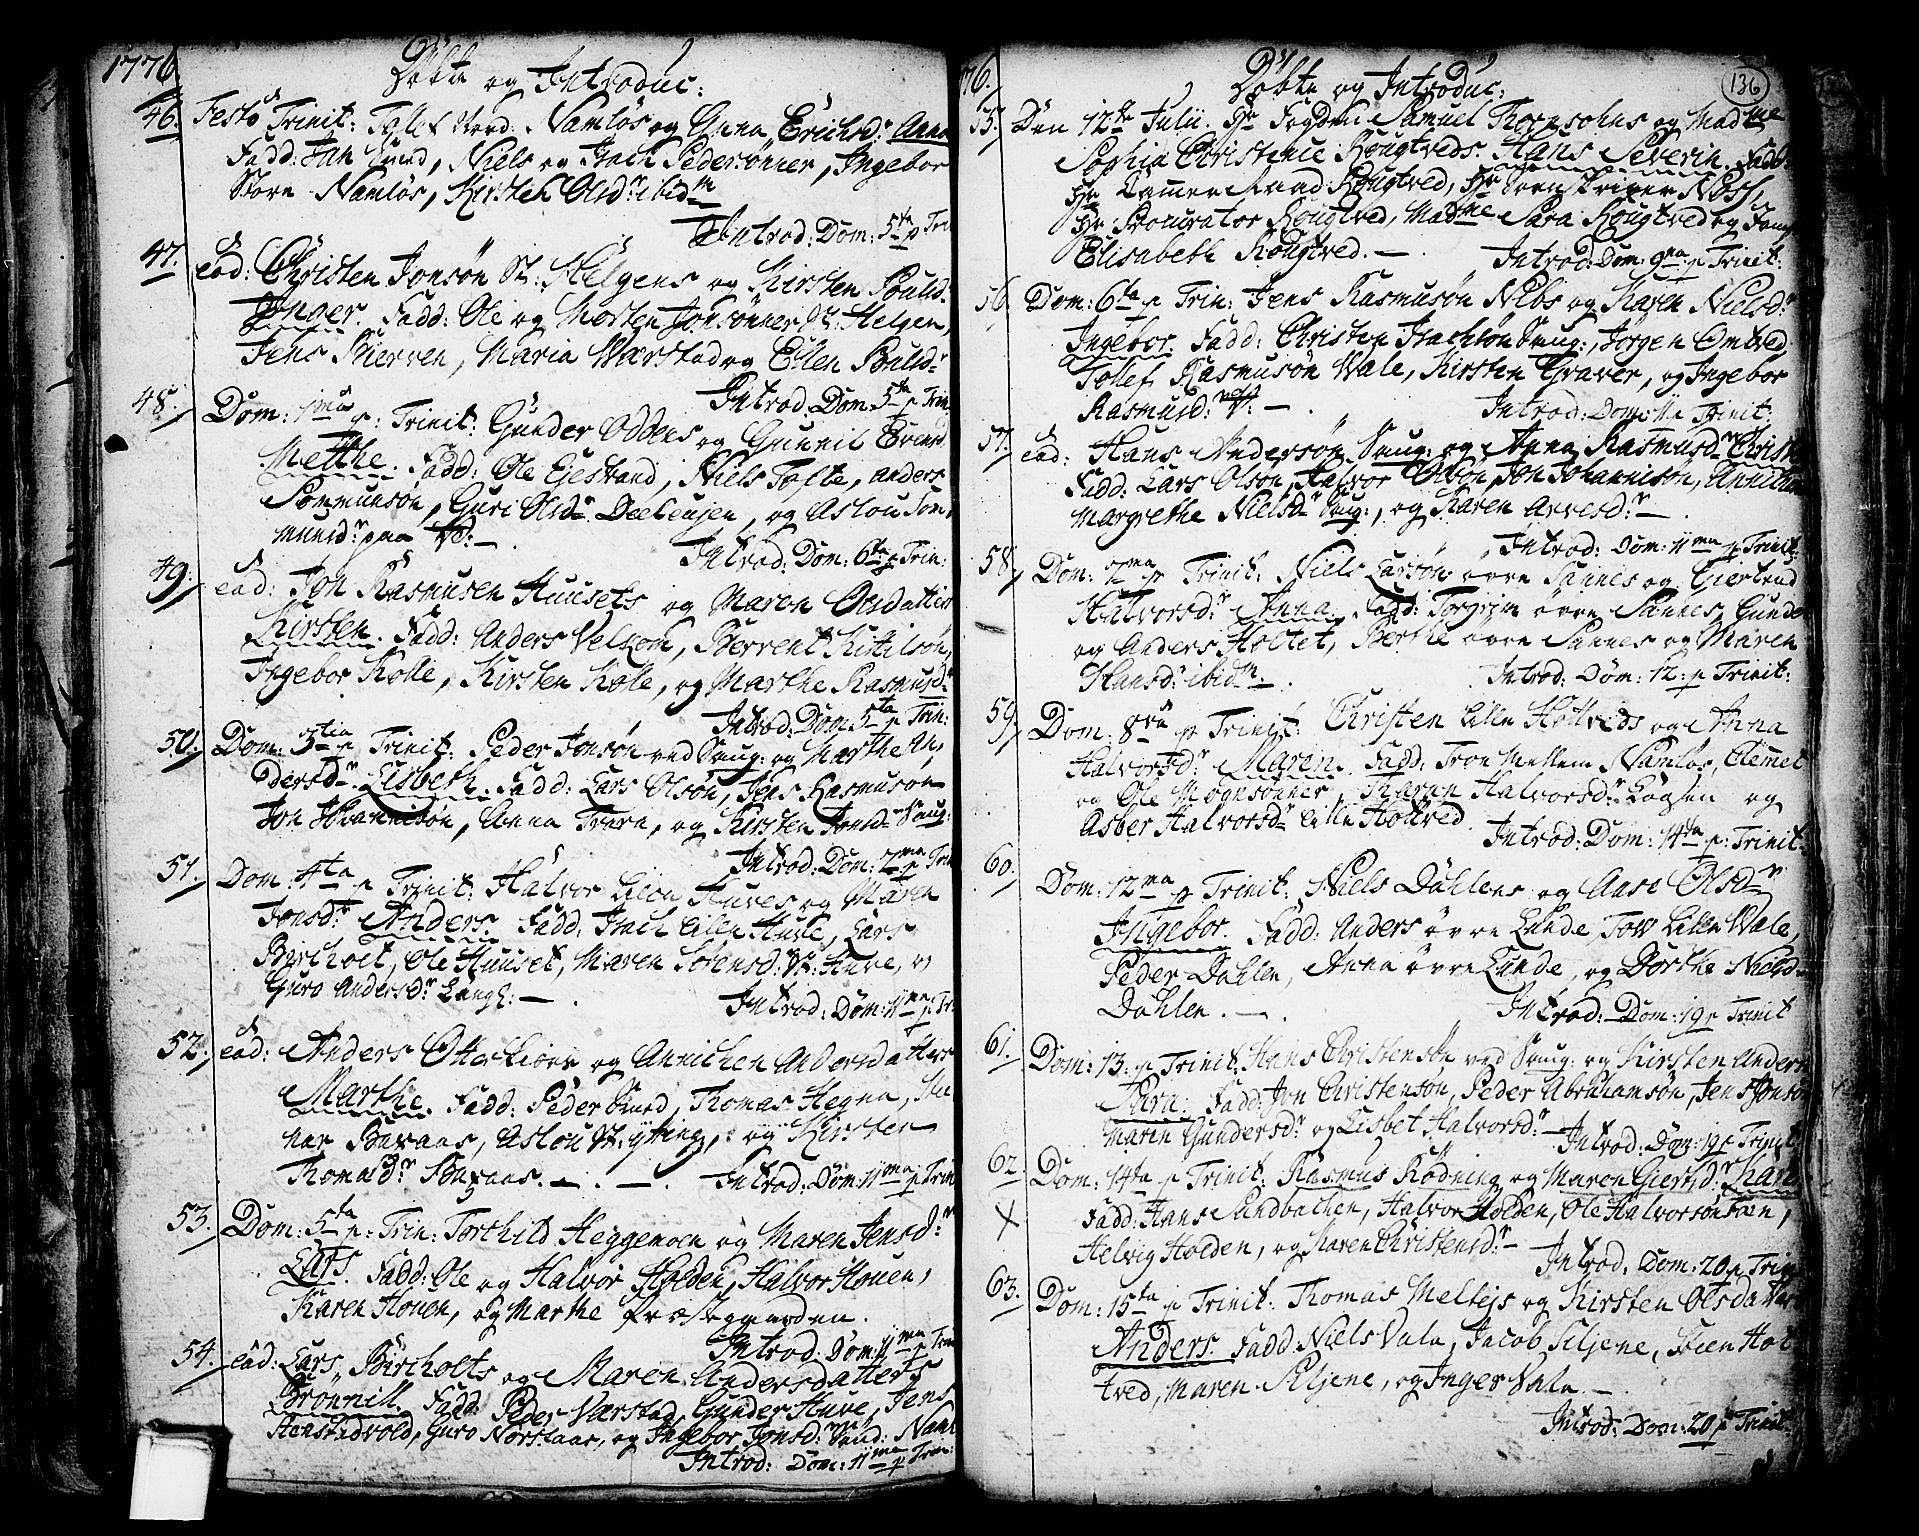 1776
Döbte og Introduc:
46. Festo Trinit: Namløs og Anna Erichsd: Anna
Fadd: Jan, Niels og Isach Pedersønner, Ingebor
Store Namløs, Kirsten Olsd: ibid
Introd: Dom: 5ta p Trin
47. ead: Christen Jonsøn St: Helgens og Kirsten Pauld:
Inger. Fadd: Ole og Morten Jonsønner St: Helgen,
Jens Bierven, Maria Wærstad og Ellen Pauld:
Introd: Dom: 5ta p Trin
48. Dom: 1ma p: Trinit: Gunder Oddens og Gunnil Evensd
Methe. Fadd: Ole Eiestrand, Niels Tofte, Anders
Sommunsøn, Guri Olsd:, og Aslou Som
munsd: paa
Introd: Dom: 6ta p Trin:
49. ead: Jon Rasmusen Huusets og Maren Olsdatter
Kirsten. Fadd: Anders Velkom, Berrent Kittilsøn,
Ingebor Kolle, Kirsten Kolle, og Marthe Rasmusd:
Introd: Dom: 5ta p Trin:
50. Dom: 3tia p Trinit: Peder Jonsøn ved Saug: og Marthe An,
dersd: Lisbeth. Fadd: Lars Olsøn, Jens Rasmusøn
Jon Johannisøn, Anna, og Kirsten Jonsd: Saug:
Introd: Dom: 7ma p Trin
51. Dom: 4ta p Trinit: Halvor Lilen Huves og Maren
Jonsd: Anders. Fadd: Isach Lillen Huve, Lars
Bircholt, Ole Huuset, Maren Sørensd: St: Huve, og
Guro Andersd: Langl: —
Introd: Dom: 11ma p: Tr
52. ead: Anders Otterkiærs og Annichen Andersdatters
Marthe. Fadd: Peder, Thomas Hegna,
nar Baxaas, Aslou St: ytring, og Kirsten
Thomasd: Baxaas. —
Introd: Dom: 11ma p Trin
53. Dom: 5ta p: Trin: Torchild Heggemoen og Maren Jensd:
Lars. Fadd: Ole og Halvor Holden, Halvor Houen,
Karen Houen, og Marthe Præstegaarden.
Introd: Dom: 11ma p Trin
54. ead: Lars Bircholts og Maren Andersdatters
Gronnill. Fadd: Peder Værstad, Gunder Huve, Jens
Henstadvold, Guro Norstaar, og Ingebor Jonsd:
Introd: Dom: 11ma p Trin:
76.
136
Döbte og Introduc:
55. Den 12te Julii. Hr Fogden Samuel Thornsohns og Madme
Sophia Christence Rougtveds. Hans Severin. Fadd
Hr Cammer Raad Rougtved, Hr Sorenskriver
Hr Procurator Rougtved, Madme Sara Rougtved og Jomf
Elisabeth Rougtved. —
Introd: Dom: 9na p Trinit:
56 Dom: 6ta p Trin: Jens Rasmusøn Nebs og Karen Nielsd:
Ingebor. Fadd: Christen Isachsøn Saug:, Jørgen Omtved,
Tollef Rasmusøn Wale, Kirsten Graver, og Ingebor
Rasmusd: —
Introd: Dom: 11 p Trinit:
57. ead: Hans Andersøn Saug: og Anna Rasmusd: Christ
Fadd: Lars Olsøn, Halvor Olsøn, Jon Johannisøn,
Margrethe Nielsd: Saug:, og Karen Arvesd: —
Introd: Dom: 11ma p Trinit:
58. Dom: 7ma p Trinit: Niels Larsøn øvre Sannes og Giertrud
Halvorsd: Anna. Fadd: Torgrim øvre Sannes, Gunder
og Anders Holtet, Berthe øvre Sannes og Maren
Hansd: ibid
Introd: Dom: 12: p Trinit:
59. Dom: 8va p Trinit: Christen Lille Holtveds og Anna
Halvorsd: Maren. Fadd: Tron Mellem Namløs, Clemet
og Ole Mognsønner, Karen Halvorsd: og
Asber Halvorsd: Lille Holtved
Introd: Dom: 14ta p: Trinit:
60. Dom: 12ma p Trinit: Niels Dahlens og Aase Olsd:
Ingebor. Fadd: Anders øvre Lunde, Tow Lille Wale,
Peder Dahlen, Anna øvre Lunde, og Dorthe Nielsd:
Dahlen. —
Introd: Dom: 19 p Trinit
61. Dom: 13: p Trinit: Hans Christensøn ved Saug: og Kirsten Anders
Sara. Fadd: Jon Christensøn, Peder Abrahamsøn, Jens Jonsøn
Maren Gundersd: og Lisbet Halvorsd: —
Introd: Dom: 19 p Trinit
62. Dom: 14ta p Trinit: Rasmus Rödning og Maren Giertsd: Karen
X Fadd: Hans Sandbachen, Halvor Holden, Ole Halvorsøn,
Helvig Holden, og Karen Christensd: —
Introd: Dom: 20 p Trin
63. Dom: 15ta p Trinit: Thomas Melteis og Kirsten Olsdatters
Anders. Fadd: Niels Vala, Jacob Siljene, Steen Hol
tved, Maren Siljene, og Inger Vala. —
Introd: Dom: 20 p Trinit